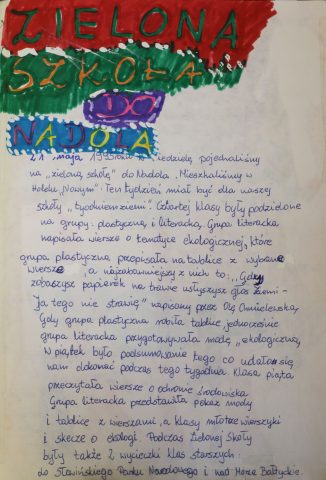 ZIELONA
SZKOŁA
DO
NADOLA
21 maja 1995 roku w niedzielę pojechaliśmy
na „zieloną szkołę" do Nadola. Mieszkaliśmy w
Hotelu „Nowym". Ten tydzień miał być dla naszej
szkoły „tygodniem ziemi". Czwartej klasy były podzielone
na grupy: plastyczną i literacką. Grupa literacka
napisała wiersze o tematyce ekologicznej, które
grupa plastyczna przepisała na tablice z wybrane
wiersze, a najzabawniejszy z nich to: „Gdy
zobaczysz papierek na trawie usłyszysz głos ziemi -
Ja tego nie strawię" napisany przez Olę Chmielewską,
Gdy grupa plastyczna robiła tablice jednocześnie
grupa literacka przygotowywała modę „ekologiczną,
W piątek było podsumowanie tego co udało się
nam dokonać podczas tego tygodnia. Klasa piąta
przeczytała wiersze o ochronie środowiska
Grupa literacka przedstawiła pokaz mody
i tablice z wierszami, a klasy młodsze wierszyki
i skecze o ekologi. Podczas Zielonej Szkoły
były także 2 wycieczki klas starszych:
do Słowińskiego Parku Narodowego i nad Morze Bałtyckie.